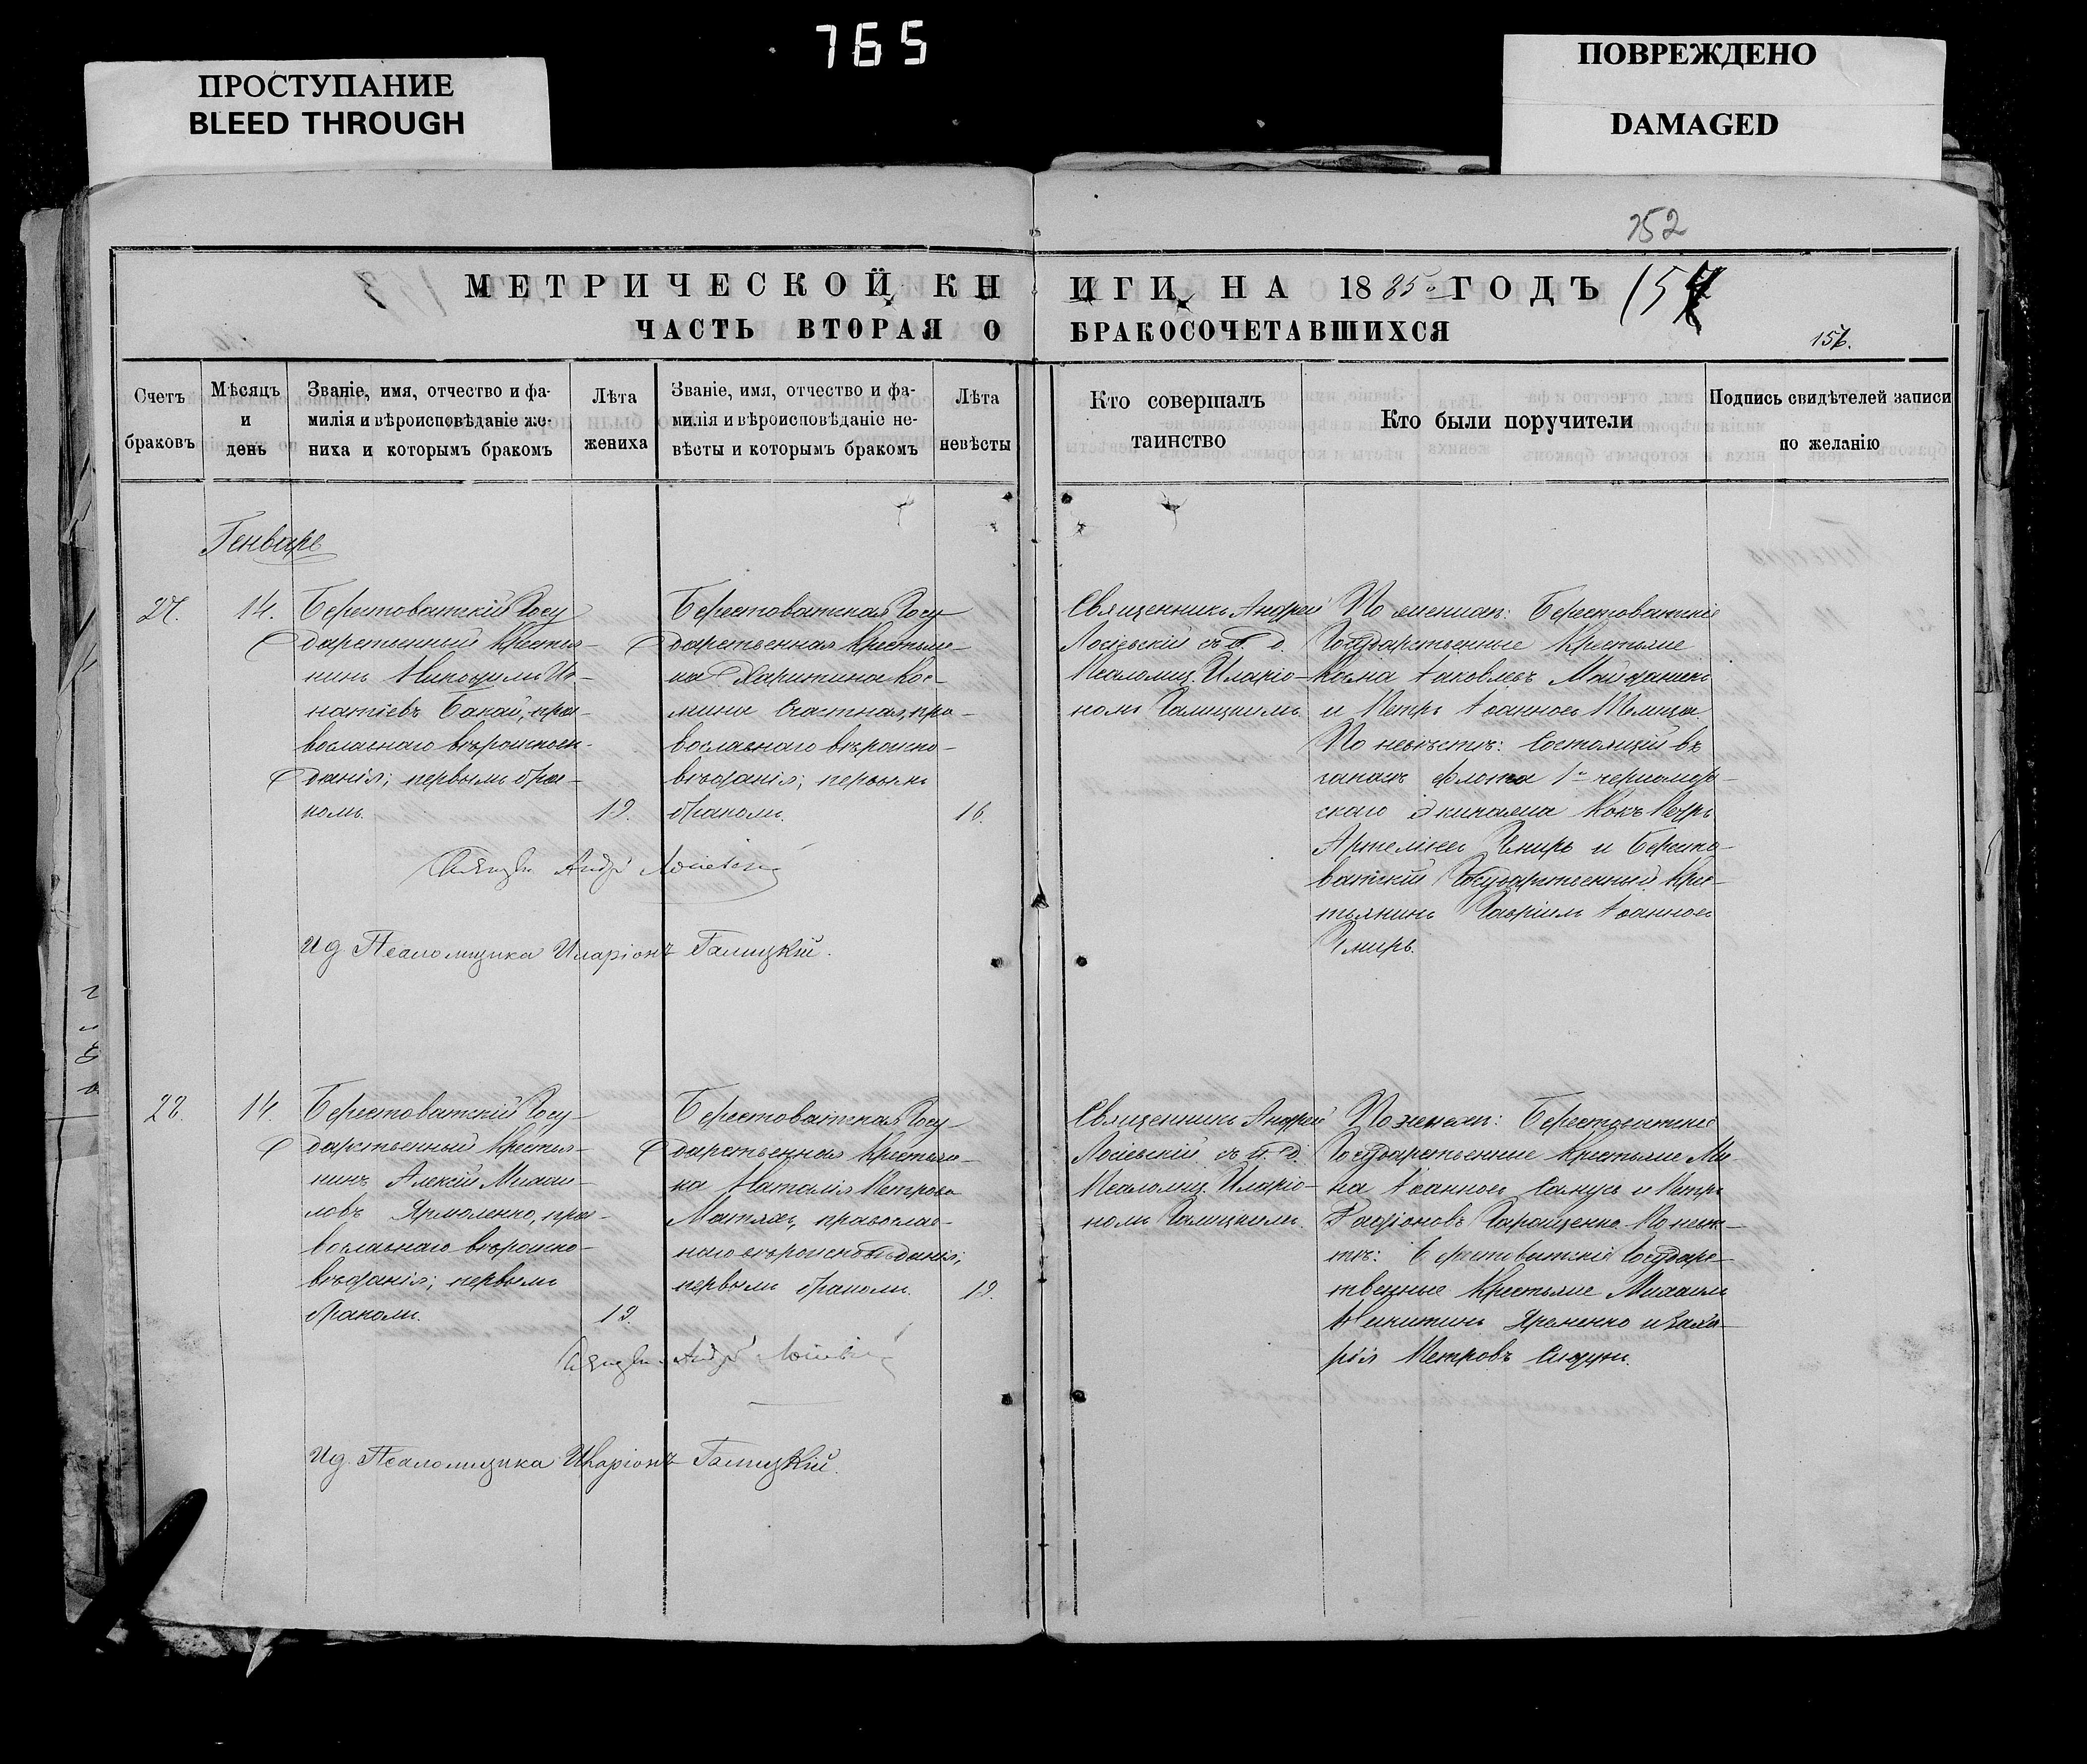 765
ПРОСТУПАНИЕ
BLEED THROUGH
ПОВРЕЖДЕНО
DAMAGED
252
МЕТРИЧЕСКОЙ КНИГИ НА 1885 ГОДЪ
ЧАСТЬ ВТОРАЯ О БРАКОСОЧЕТАВШИХСЯ
Счетъ браковъ
Мѣсяцъ и день
Званіе, имя, отчество и фа-
милія и вѣроисповѣданіе же-
ниха и которымъ бракомъ
Лѣта жениха
Званіе, имя, отчество и фа-
милія и вѣроисповѣданіе не-
вѣсты и которымъ бракомъ
Лѣта невѣсты
Кто совершалъ таинство
Кто были поручители
Подпись свидѣтелей записи
по желанію
Генварь
27.
14.
Берестоватскій Госу
дарственный Крестья-
нинъ
Бакай, пра-
вославнаго вѣроиспов-
данія; первымъ бра-
комъ.
19.
Берестоватская Госу
дарственная Крестьян-
ка Харитина Кос-
мина Счастная, пра-
вославнаго вѣроиспо-
вѣданія; первымъ
бракомъ.
16.
Священникъ Андрей
Лосіевскій съ
Псаломщ. Иларіо-
номъ Галицкимъ.
По женихѣ: Берестоватскіе
Государственные Крестьяне
Косма Іаковлевъ
и Петръ Іоанновъ
По невѣстѣ: Состоящій въ
флота 1го черномор-
скаго Экипажа Петръ
и Бересто-
ватскій Государственный Кре-
стьянинъ Гавріилъ Іоанновъ
Чмиръ.
Священ. Андр. Лосіевскій
Ид. Псаломщика Иларіонъ Галицкій.
28.
14.
Берестоватскій Госу-
дарственный Крестья-
нинъ Алексій Михаи-
ловъ Ярмоленко, пра-
вославнаго вѣроиспо-
вѣданія; первымъ
бракомъ.
19.
Берестоватская Госу-
дарственная Крестьян-
ка Наталія Петрова
православ-
наго вѣроисповѣданія;
первымъ бракомъ.
19.
Священникъ Андрей
Лосіевскій съ
Псаломщ. Иларіо-
номъ Галицкимъ.
По женихѣ: Берестоватскіе
Государственные Крестьяне Ми-
на Іоанновъ и Петръ
Родіоновъ Геращенко. По невѣс-
тѣ: Берестоватскіе Государс-
твенные Крестьяне Михаилъ
Никитинъ и Заха-
рія Петровъ
Священ. Андр. Лосіевскій
Ид. Псаломщика Иларіонъ Галицкій.